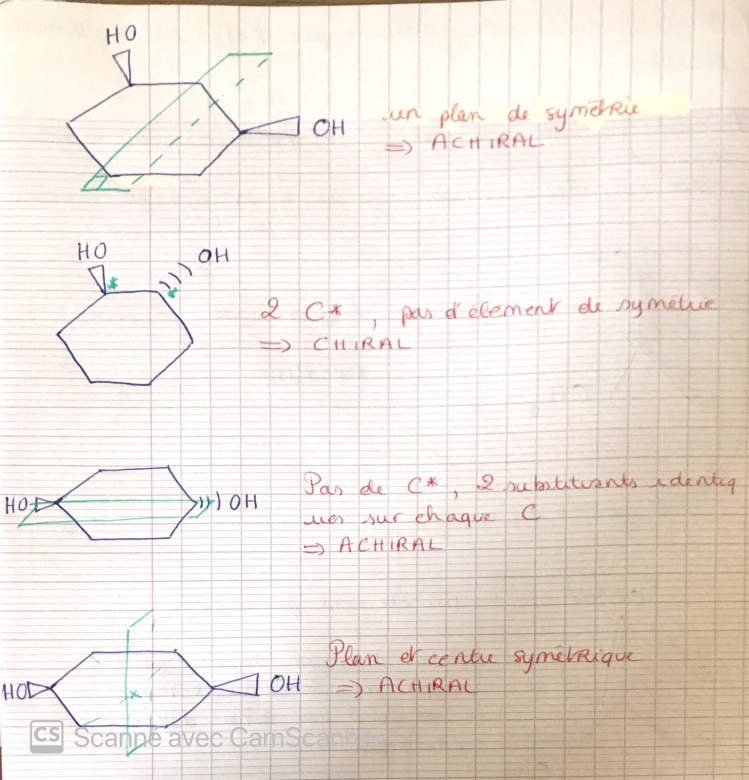 HO
OH
un plan de symétrie
=> ACHIRAL
HO
OH
*
*
2 C*, pas d'élement de symétrie
=> CHIRAL
HO
OH
Pas de C*, 2 substituants identiq
ues sur chaque C
=> ACHIRAL
HO
OH
Plan et centre symétrique
=> ACHIRAL
CS Scanné avec CamScanner